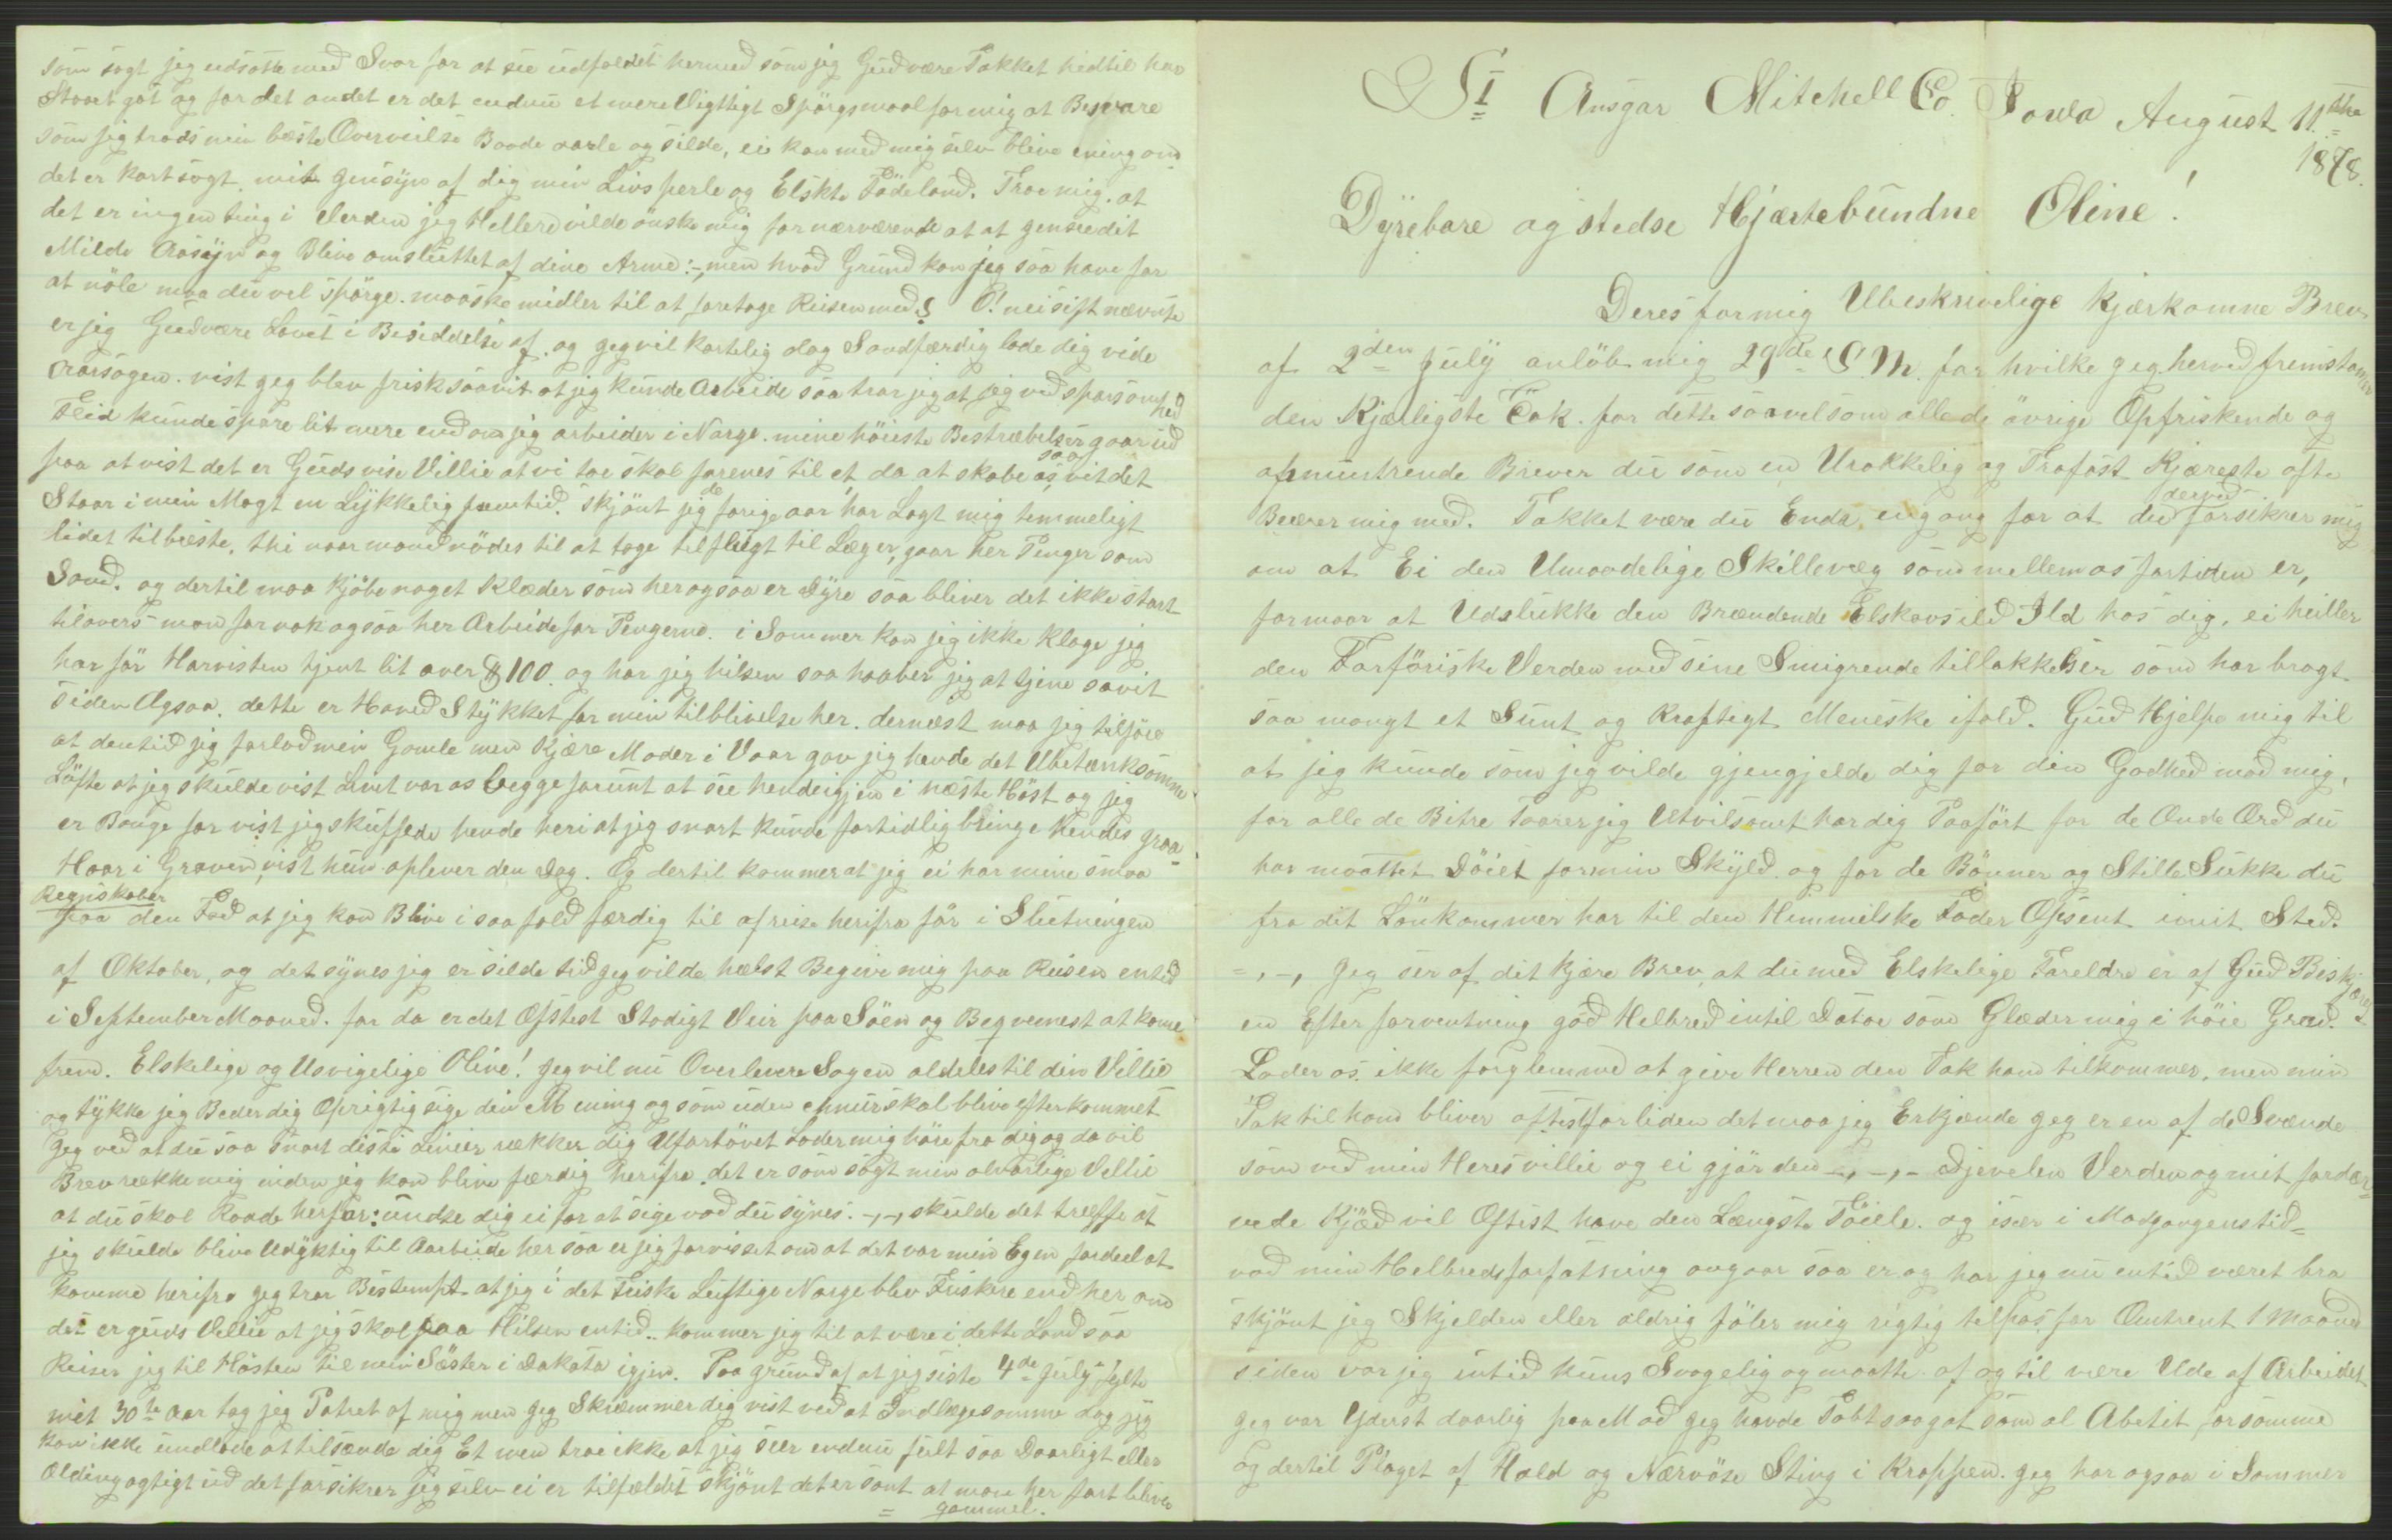 St Ansgar Mitchell Co. Iowa August 11the
1878.
Dÿrebare og stedse Hjærtebundne Oline!
Deres for mig Ubeskrivelige kjærkomne Brev
af 2den Julÿ anlöb mig 29de s.m. for hvilke jeg herved fremstamer
den Kjærligste Tak. for dette saavelsom alle de övrige Opfriskende og
opmuntrende Brever du som en Urokkelig og Trofast Kjæreste ofte
Beærer mig med. Takket være du Enda engang for at du derved forsikrer mig
om at Ei den Umaadelige Skillevæg som mellem os fortiden er,
formaar at Udslukke den Brændende Elskovs ild Ild hos dig, ei heiller
den Forföriske Verden med sine Smigrende tillokkelser som har bragt
saa mangt et Sunt og Kraftigt Meneske ifald. Gud Hjelpe mig til
at jeg kunde som jeg vilde gjengjelde dig for din Godhed mod mig,
for alle de Bitre Taarer jeg Utvilsomt har dig Paafört for de Onde Ord du
har maattet Döiet for min Skÿld og for de Bönner og Stille Sukke du
fra dit Lönkammer har til den Himmelske Fader Opsent imit Sted.
=,-, Jeg ser af dit kjære Brev, at du med Elskelige Foreldre er af Gud Beskjæret
en Efter forventning god Helbred intil Datoe som Glæder mig i höie Grad.
Lader os ikke forglemme at give Herren den Tak ham tilkommer, men min
Tak til ham bliver oftest forliden det maa jeg Erkjende jeg er en af de Svende
som ved min Heres villie og ei gjör den -,-,- Djevelen Verden og mit fordær=
vede Kjød vil Oftest have den Længste Töiele. og især i Modgangens tid=
vad min Helbreds forfatning angaar saa er og har jeg nu entid været bra
skjönt jeg Skjelden eller aldrig föler mig rigtig tilpas, for Omtrent 1 Maaned
siden var jeg entid kuns Svagelig og maatte af og til være Ude af Arbeidet
jeg var Yderst daarlig paa Mad jeg havde Tabt saagot som al Abetit forsomme
og dertil Plaget af Hold og Nærvöse Sting i Kroppen. jeg har ogsaa i Sommer
som sagt jeg udsatte med Svar for at see udfaldet hermed som jeg Gud være Takket hidtil har
Staaet got og for det andet er det endnu et mere Vigttigt Spörgsmaal for mig at Besvare
som jeg trods min bæste Overveilse Baade aarle og silde, ei kan med mig selv blive ening om
det er kort sagt mit gensÿn af dig min Livs perle og Elskte Födeland. Troe mig. at
det er ingen ting i Verden jeg Hellere vilde önske mig for nærværende at at gensee dit
Milde Aasÿn og Blive omsluttet af dine Arme:-, men hvad Grund kan jeg saa have for
at nöle maa du vel spörge. maaske midler til at foretage Reisen med? O! nei sist nævnte
er jeg Gudvære Lovet i Besiddelse af. og jeg vil kortelig dog Sandfærdig lade dig vide
aarsagen. vist jeg blev frisk saavit at jeg kunde Arbeide saa tror jeg at jeg ved sparsomhed
Flid kunde spare lit mere end om jeg arbeider i Norge. mine höieste Bestræbelser gaar ud
paa at vist det er Guds vise Villie at vi toe skal forenes til et da at skabe os saavit det
Staar i min Magt en Lÿkkelig fremtid. skjönt jeg de forige aar har Lagt mig temmeligt
lidet tilbæste, thi naar man nödes til at tage tilflugt til Læger, gaar her Penger som
Sand. og dertil maa kjöbe noget Klæder som her ogsaa er Dÿre saa bliver det ikke stort
tilovers man for nok ogsaa her Arbeide for Pengerne. i Sommer kan jeg ikke klage jeg
har för Harvisten tjent lit over $100 og har jeg hilsen saa haaber jeg at tjene savit
siden Ogsaa. dette er Hoved Stÿkket for min tilblivelse her. dernæst maa jeg tilföie
at dentid jeg forlod min Gamle men Kjære Moder i Vaar gav jeg hende det Ubetænksomme
Löfte at jeg skulde vist Livet var os begge forunt at see hende igjen i næste Höst og jeg
er Bange for vist jeg skuffede hende heri at jeg snart kunde fortidlig bringe hendes graa
Haar i Graven, vist hun oplever den Dag. Og dertil kommer at jeg ei har mine smaa
Regnskaber
paa den Fod at jeg kan Blive i saafald færdig til afreise herifra för i Slutningen
af Oktober, og det sÿnes jeg er silde tid jeg vilde helst Begive mig paa Reisen entid
i September Maaned. for da er det Oftest Stadigt Veir paa Söen og Beqvemest at kome
frem. Elskelige og Usvigelige Oline! jeg vil nu Overlevere Sagen aldeles til din Villie
og tÿkke jeg Beder dig Oprigtig sige din Mening og som uden Knur skal blive efterkommet
jeg ved at du saa snart diste Linier rækker dig Ufortövet Lader mig höre fra dig og da vil
Brev række mig inden jeg kan blive færdig herifra. det er som sagt min alvorlige Villie
at du skal Raade herfor: undse dig ei for at sige vad du sÿnes. -,-, skulde det treffe at
jeg skulde blive Udÿktig til Aarbeide her saa er jeg forvisset om at det var min Egen fordeel at
komme herifra jeg tror Bestempt at jeg i det Friske Luftige Norge blev Friskere end her om
det er guds Villie at jeg skal faa Hilsen entid.. kommer jeg til at være i dette Land saa
Reiser jeg til Hösten til min Söster i Dakota igjen. Paa grund af at jeg siste 4de Julÿ fÿlte
mit 30te aar tog jeg Potret af mig men jeg Skræmmer dig vist ved at Indlægesamme dog jeg
kan ikke undlade at tilsænde dig Et men troe ikke at jeg seer endnu fult saa Daarligt eller
Oldingagtigt ud det forsikrer jeg selv ei er tilfældet skjönt det er sant at man her fort bliver
= gammel.